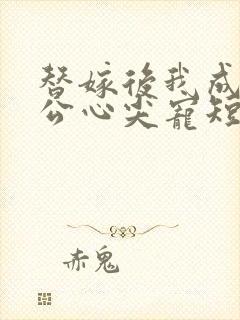 替嫁後我成
公心尖寵短
赤鬼